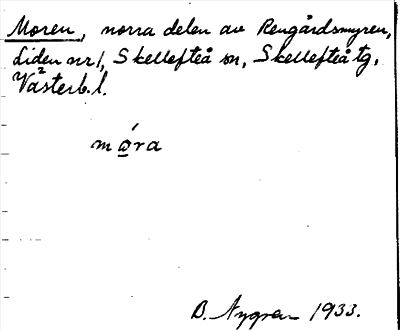 Moren, norra delen av Rengårdsmyren,
Liden nr 1, Skellefteå sn, Skellefteå tg,
Västerb. l.
2
mo̲ŕa
B. Nygren 1933.